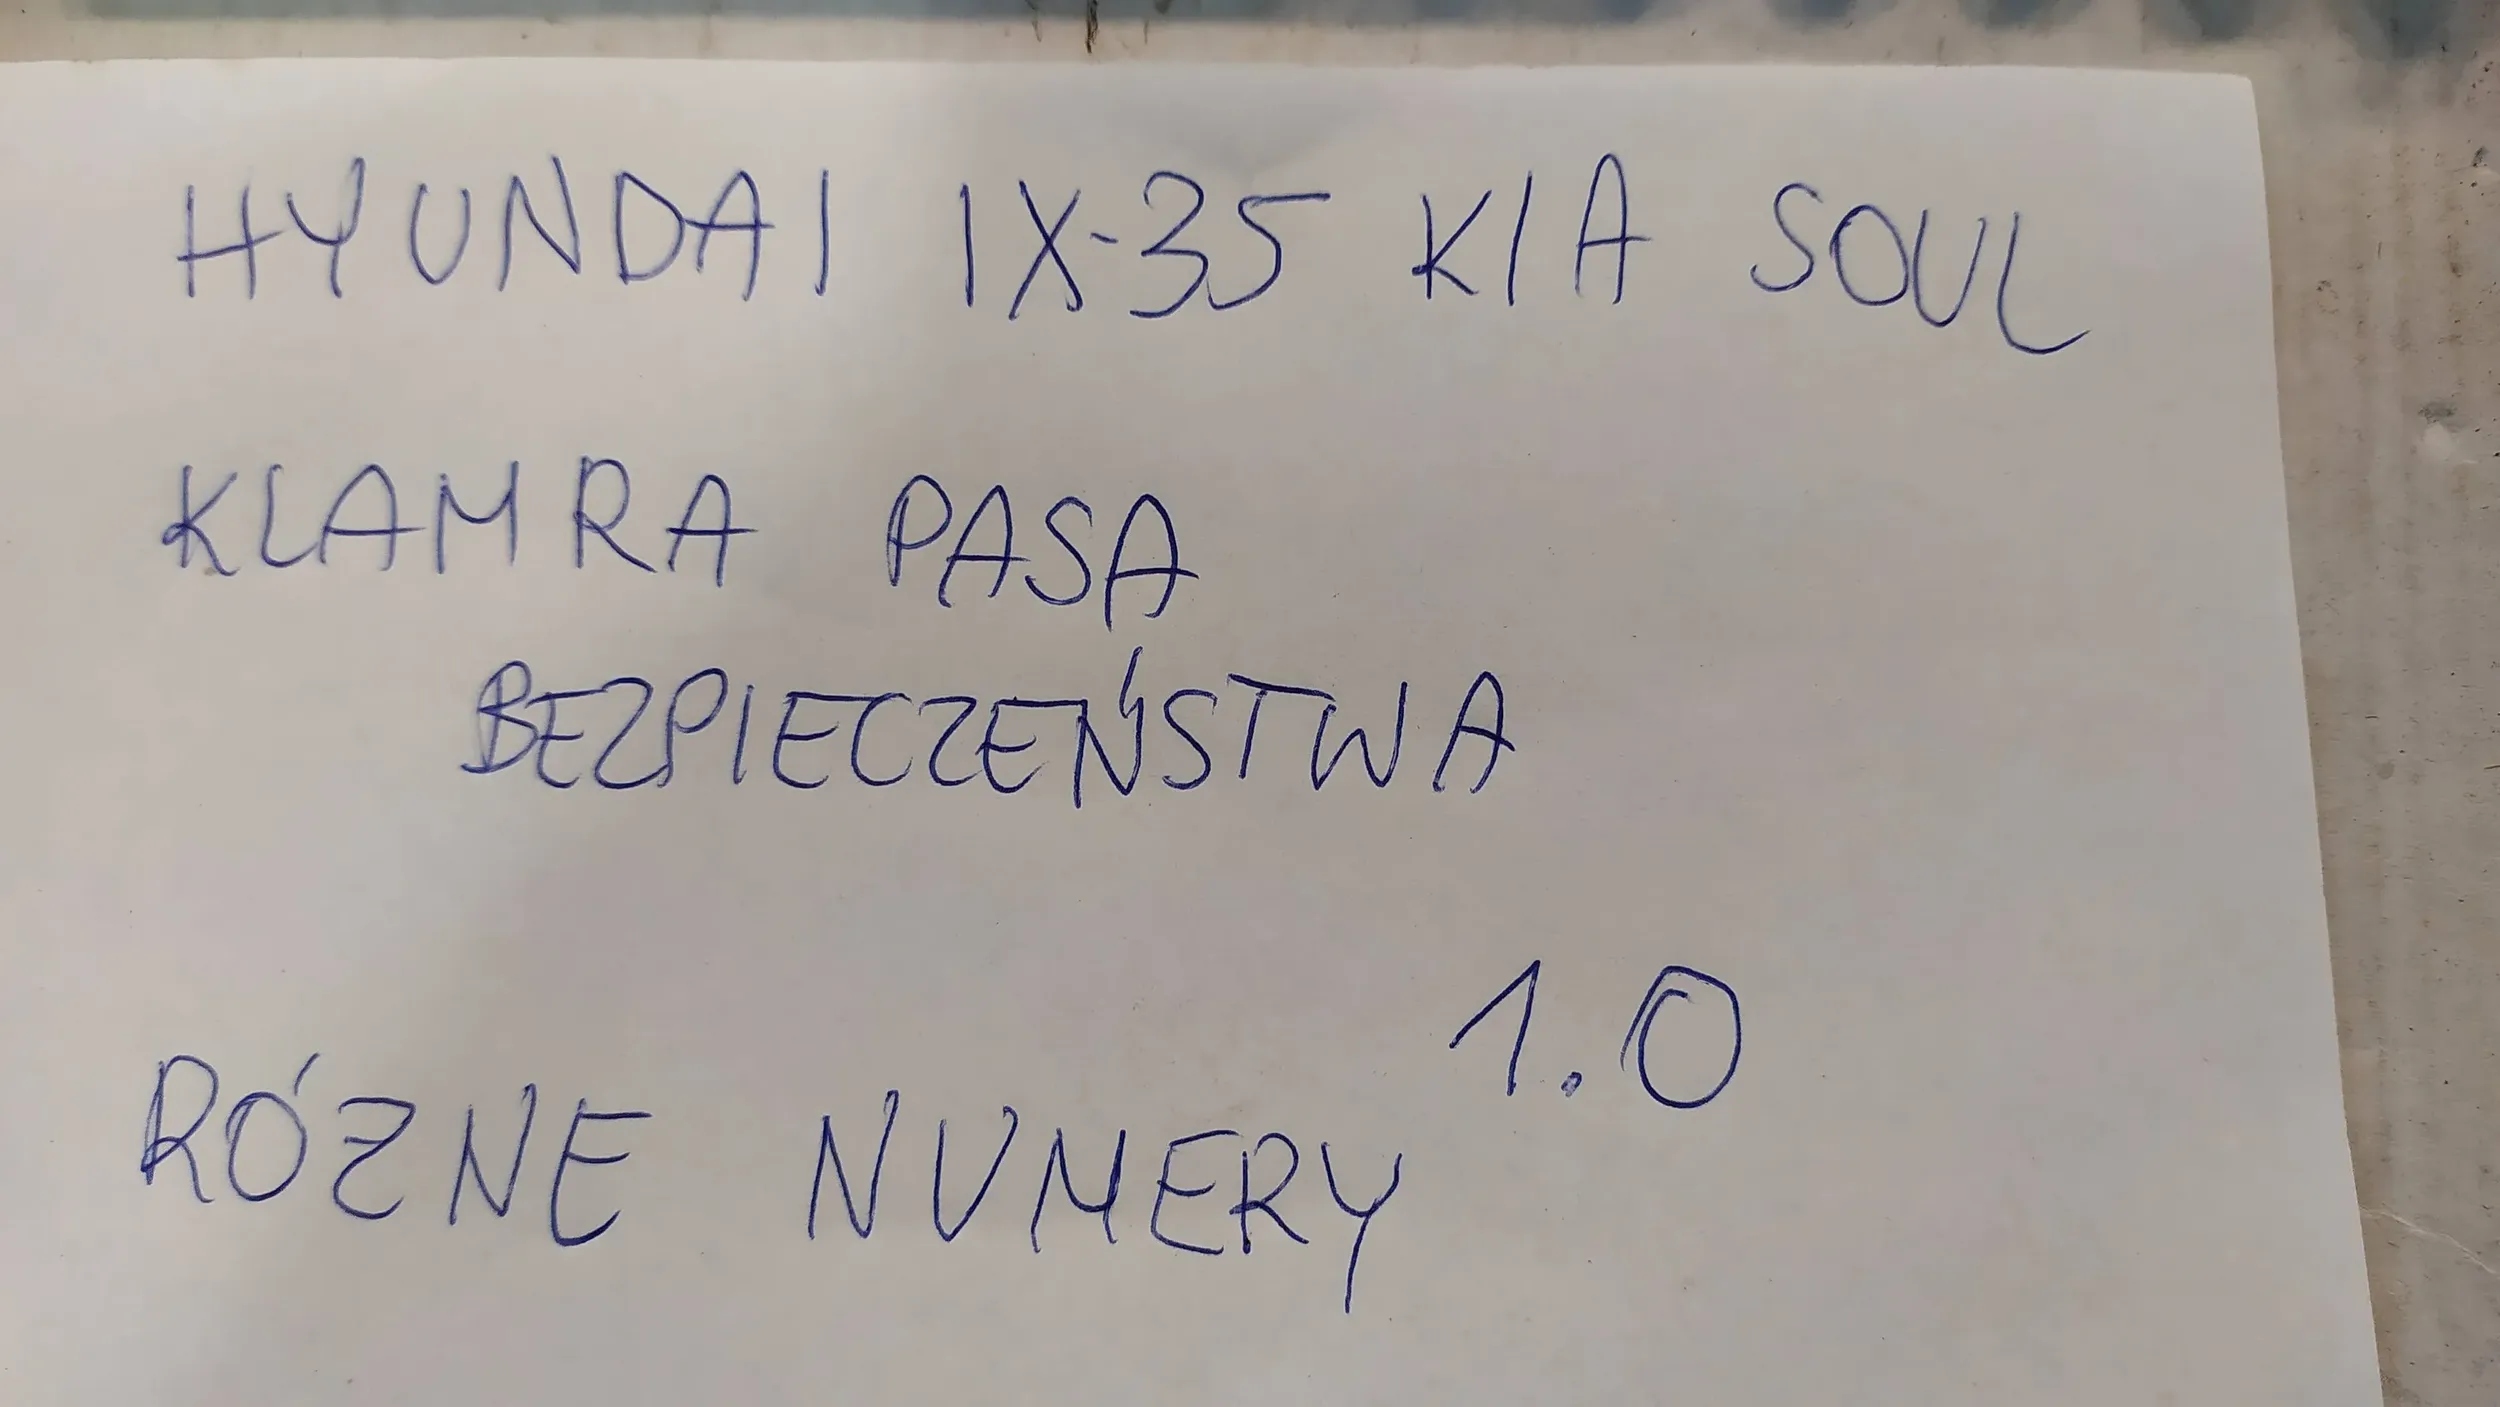 HYUNDAI IX-35 KIA SOUL
KLAMRA PASA
BEZPIECZEŃSTWA
1.0
RÓZNE NUMERY